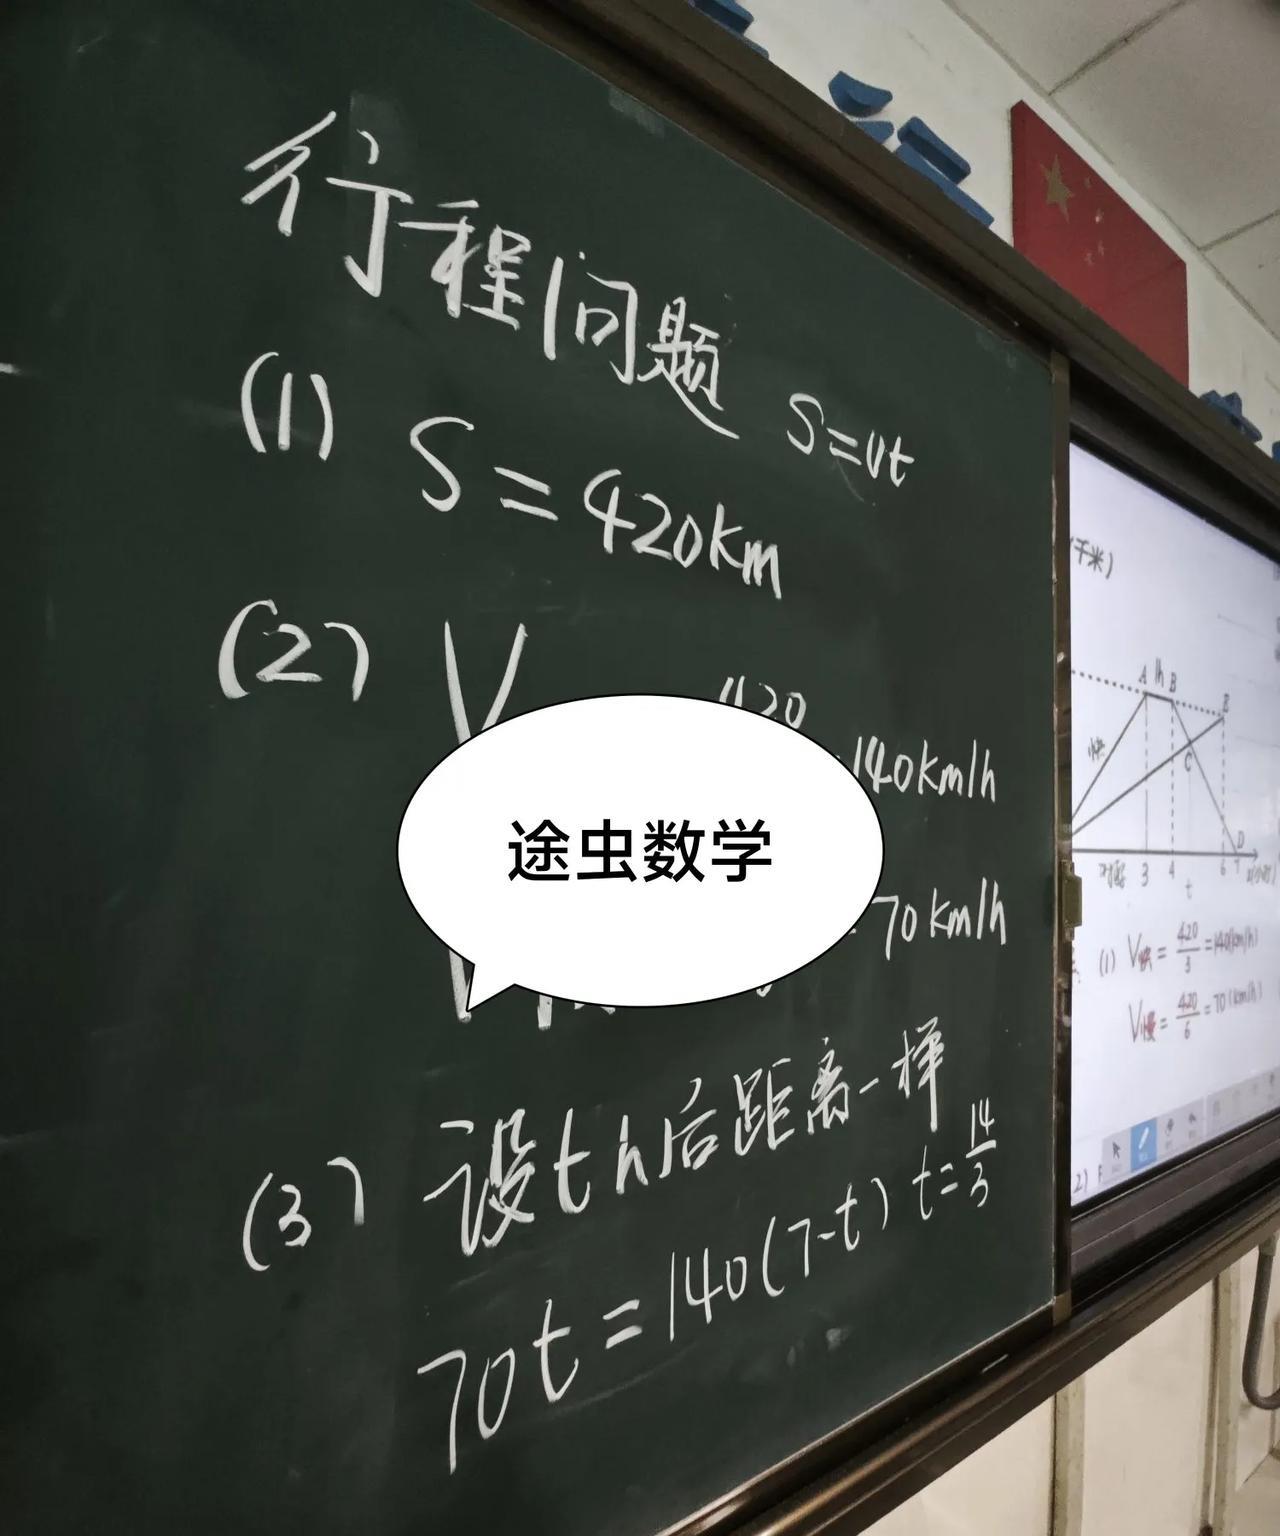 行程问题 S=vt
(1) S=420km
(2) V
420
140km/h
途虫数学
70km/h
(3) 设t h后距离一样
70t=140(7-t) t=14/3
千米)
A 1h B
E
快
C
D
3 4 t 6 7
(1) V快=420/3=140(km/h)
V慢=420/6=70(km/h)
2)